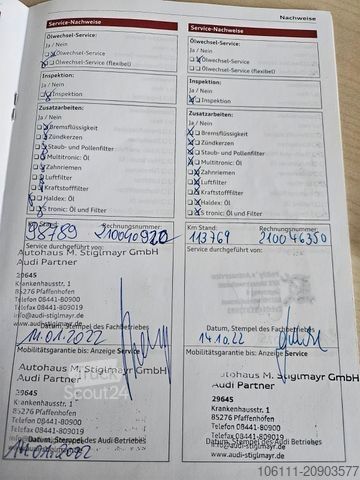 Nachweise
Service-Nachweise
Ölwechsel-Service:
Ja / Nein
Ölwechsel-Service
Ölwechsel-Service (flexibel)
Inspektion:
Ja / Nein
Inspektion
Zusatzarbeiten:
Ja / Nein
Bremsflüssigkeit
Zündkerzen
Staub- und Pollenfilter
Multitronic: Öl
Zahnriemen
Luftfilter
Kraftstofffilter
Haldex: Öl
S tronic: Öl und Filter
98789
Rechnungsnummer:
Service durchgeführt von:
Autohaus M. Stiglmayr GmbH
Audi Partner
29645
Krankenhausstr. 1
85276 Pfaffenhofen
Telefon 08441-80900
Telefax 08441-809090
info@audi-stiglmayr.de
www.audi-stiglmayr.de
Datum, Stempel des Fachbetriebes
11.01.2022
Mobilitätsgarantie bis: Anzeige Service
Autohaus M. Stiglmayr GmbH
Audi Partner
Truck
Scout24
29645
Krankenhausstr. 1
85276 Pfaffenhofen
Telefon 08441-80900
Datum, Stempel des Audi Betriebes
Service-Nachweise
Ölwechsel-Service:
Ja / Nein
Ölwechsel-Service
Ölwechsel-Service (flexibel)
Inspektion:
Ja / Nein
Inspektion
Zusatzarbeiten:
Ja / Nein
Bremsflüssigkeit
Zündkerzen
Staub- und Pollenfilter
Multitronic: Öl
Zahnriemen
Luftfilter
Kraftstofffilter
Haldex: Öl
S tronic: Öl und Filter
Km Stand: Rechnungsnummer:
113769 210046350
Service durchgeführt von:
Datum, Stempel des Fachbetriebes
14.10.22
Mobilitätsgarantie bis: Anzeige Service
Autohaus M. Stiglmayr GmbH
Audi Partner
29645
Krankenhausstr. 1
85276 Pfaffenhofen
Telefon 08441-80900
Telefax 08441-809090
Datum, Stempel des Audi Betriebes
www.audi-stiglmayr.de
106111-20903577